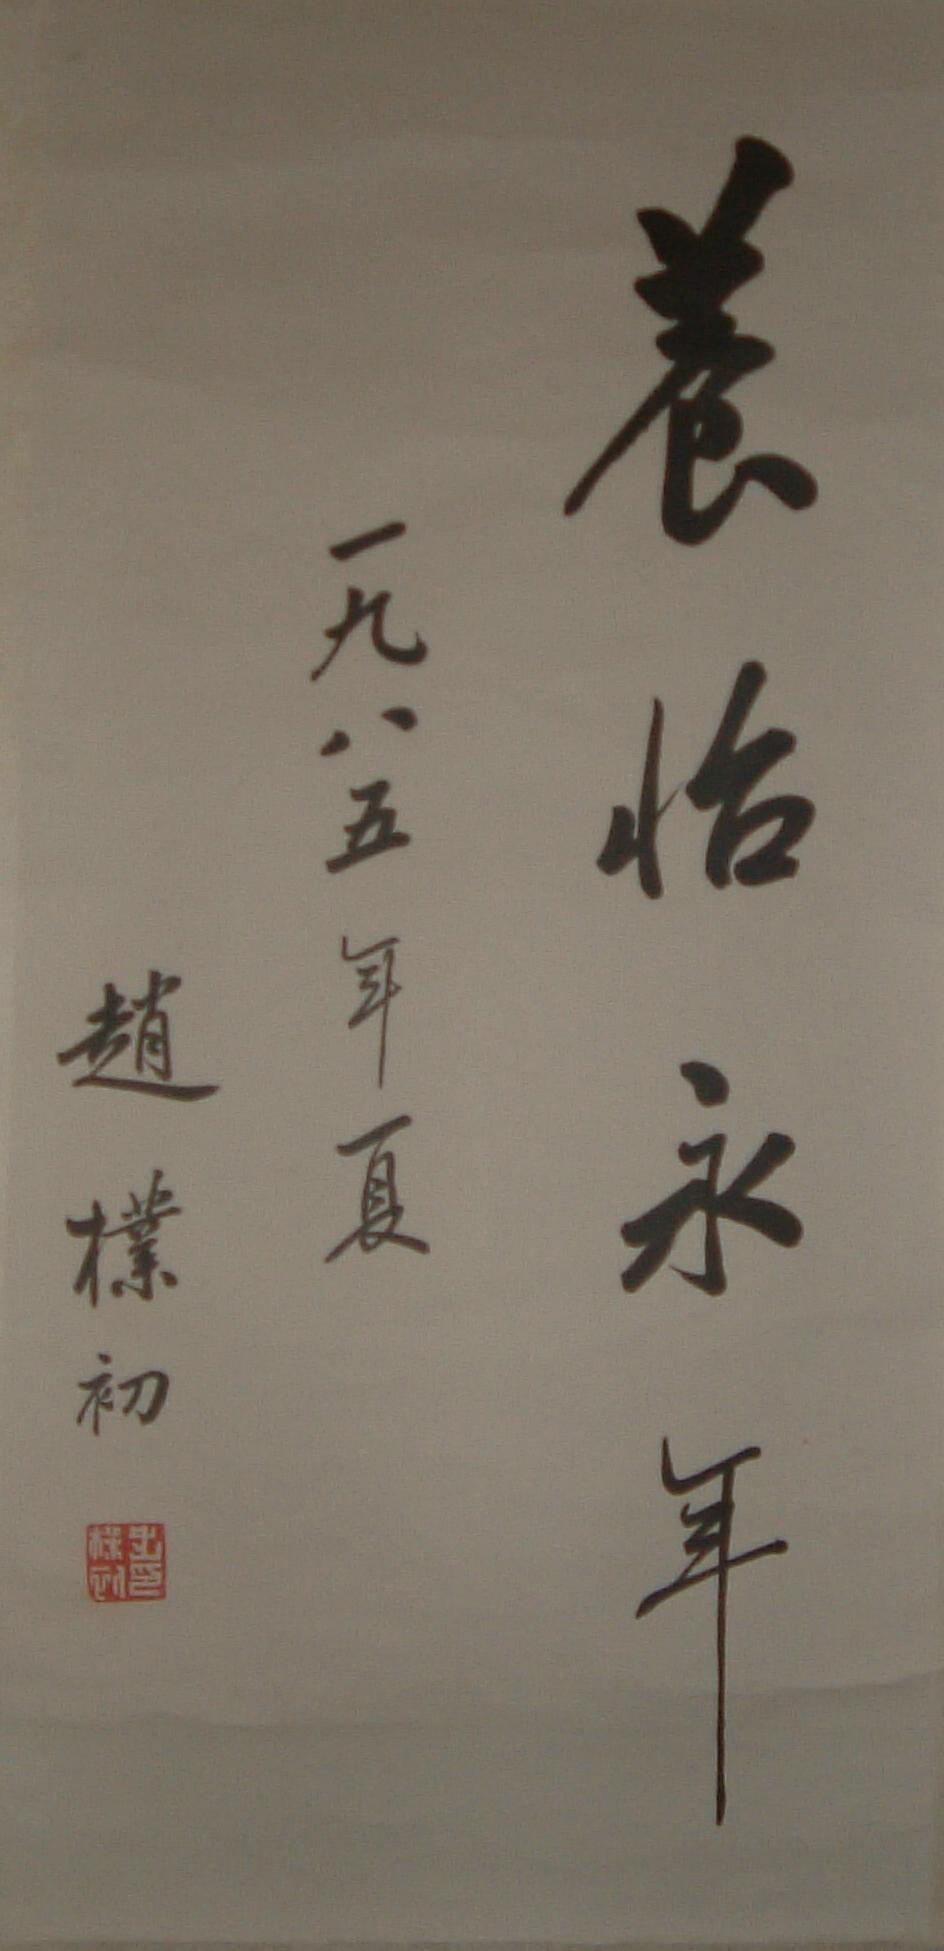 養怡永年
一九八五年夏
趙樸初